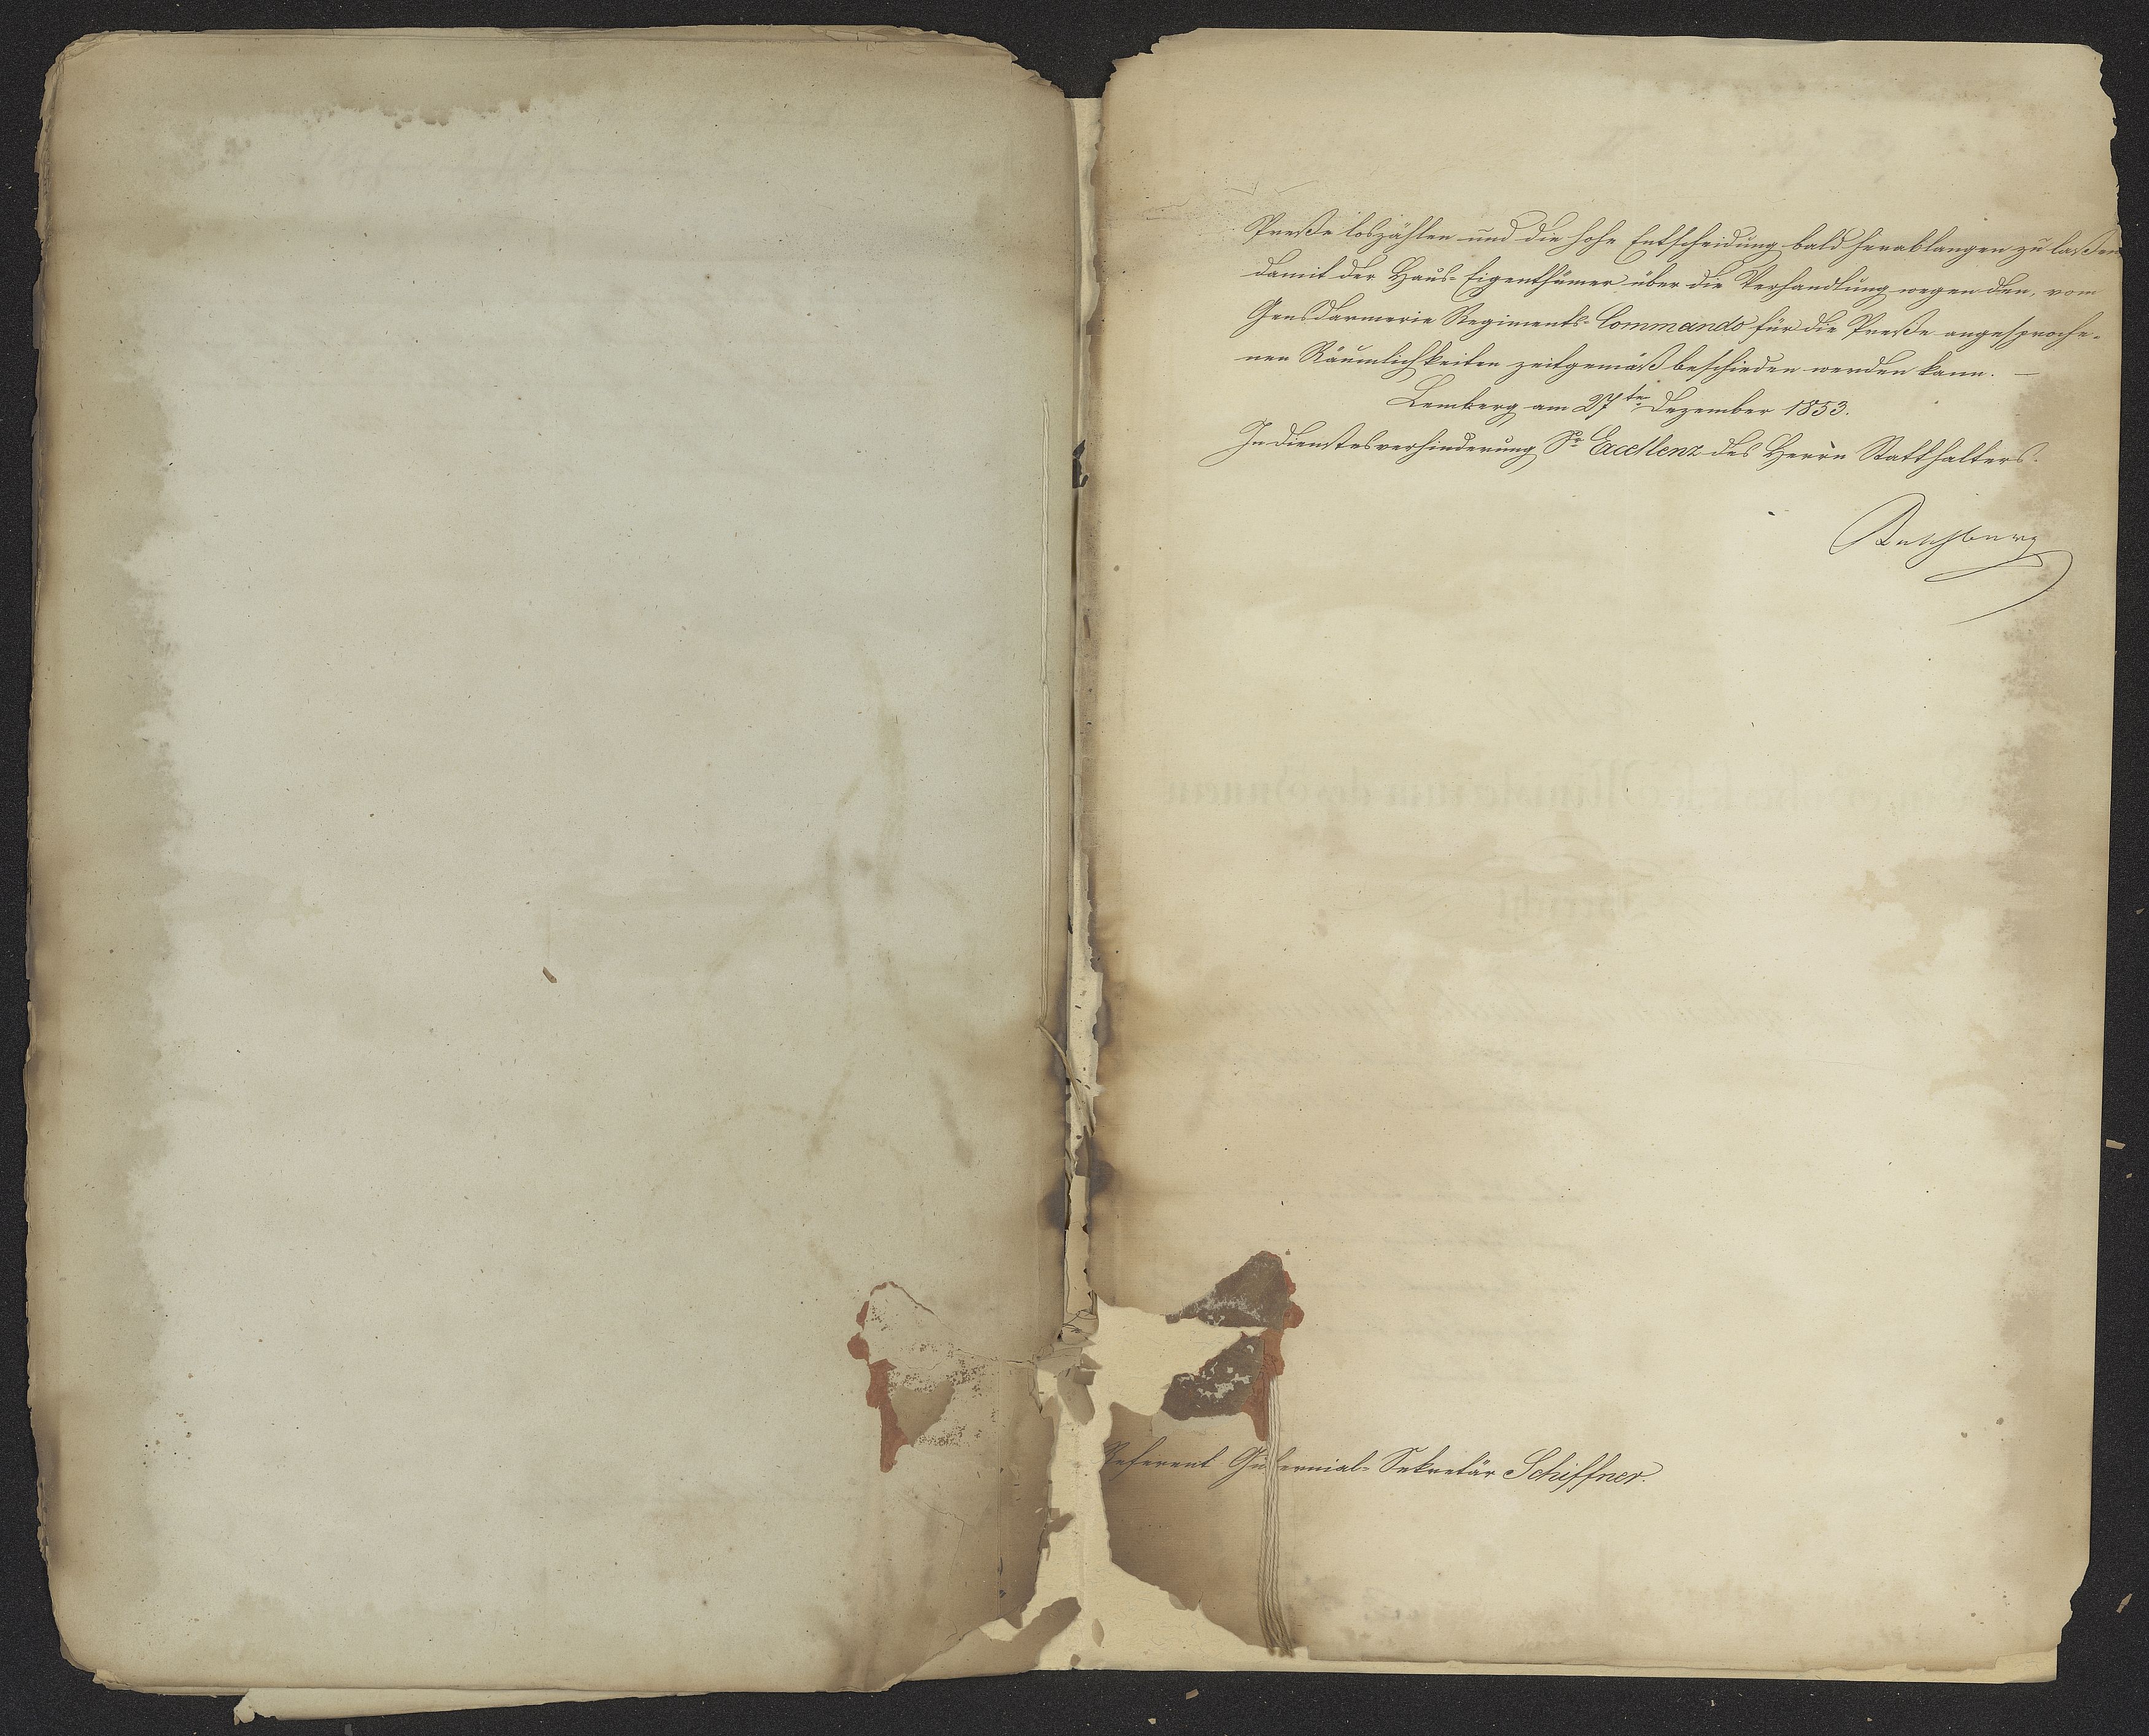 Preße loszählen und die hohe Entscheidung bald herablangen zu laßen
damit der Haus-Eigenthümer über die Verhandlung wegen den, vom
Gensdarmerie Regiments-Commando für die Preße angesproche-
nen Räumlichkeiten zeitgemäß beschieden werden kann. —
Lemberg am 27ten Dezember 1853.
In Dienstesverhinderung Sr Excellenz des Herrn Statthalters.
Referent Gubernial-Sekretär Schiffner.